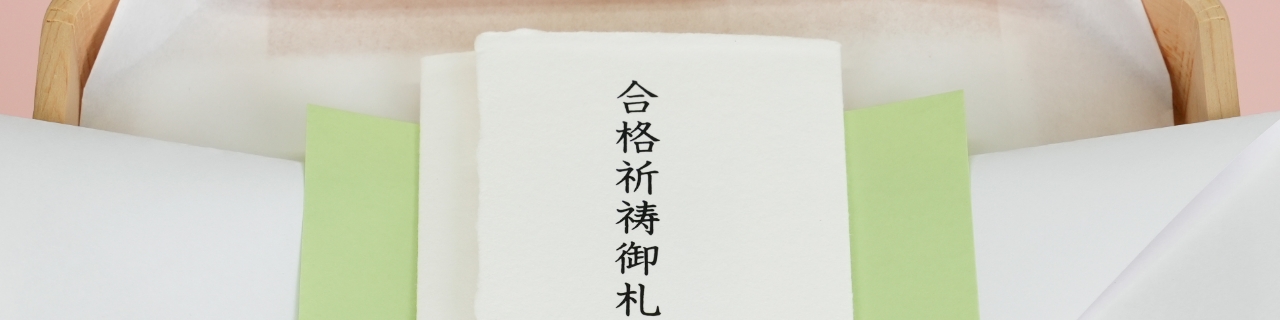 合格祈祷御札